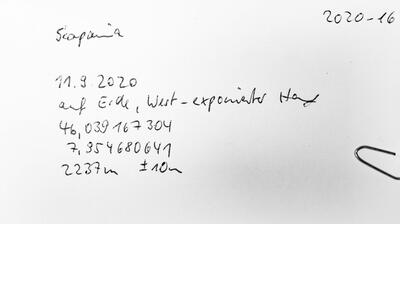 2020-16
Scapania
11.9.2020
auf Erde, West-exponierter Hang
46,039167304
7,954680641
2237m ±10m